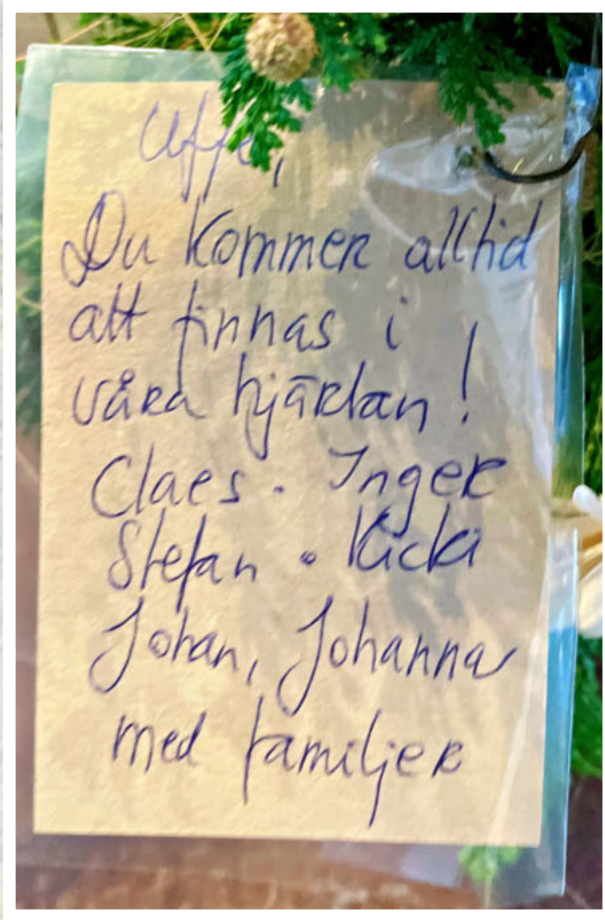 Uffe,
Du kommer alltid
att finnas i
våra hjärtan!
Claes. Inger
Stefan. Kicki
Johan, Johanna
med familjer